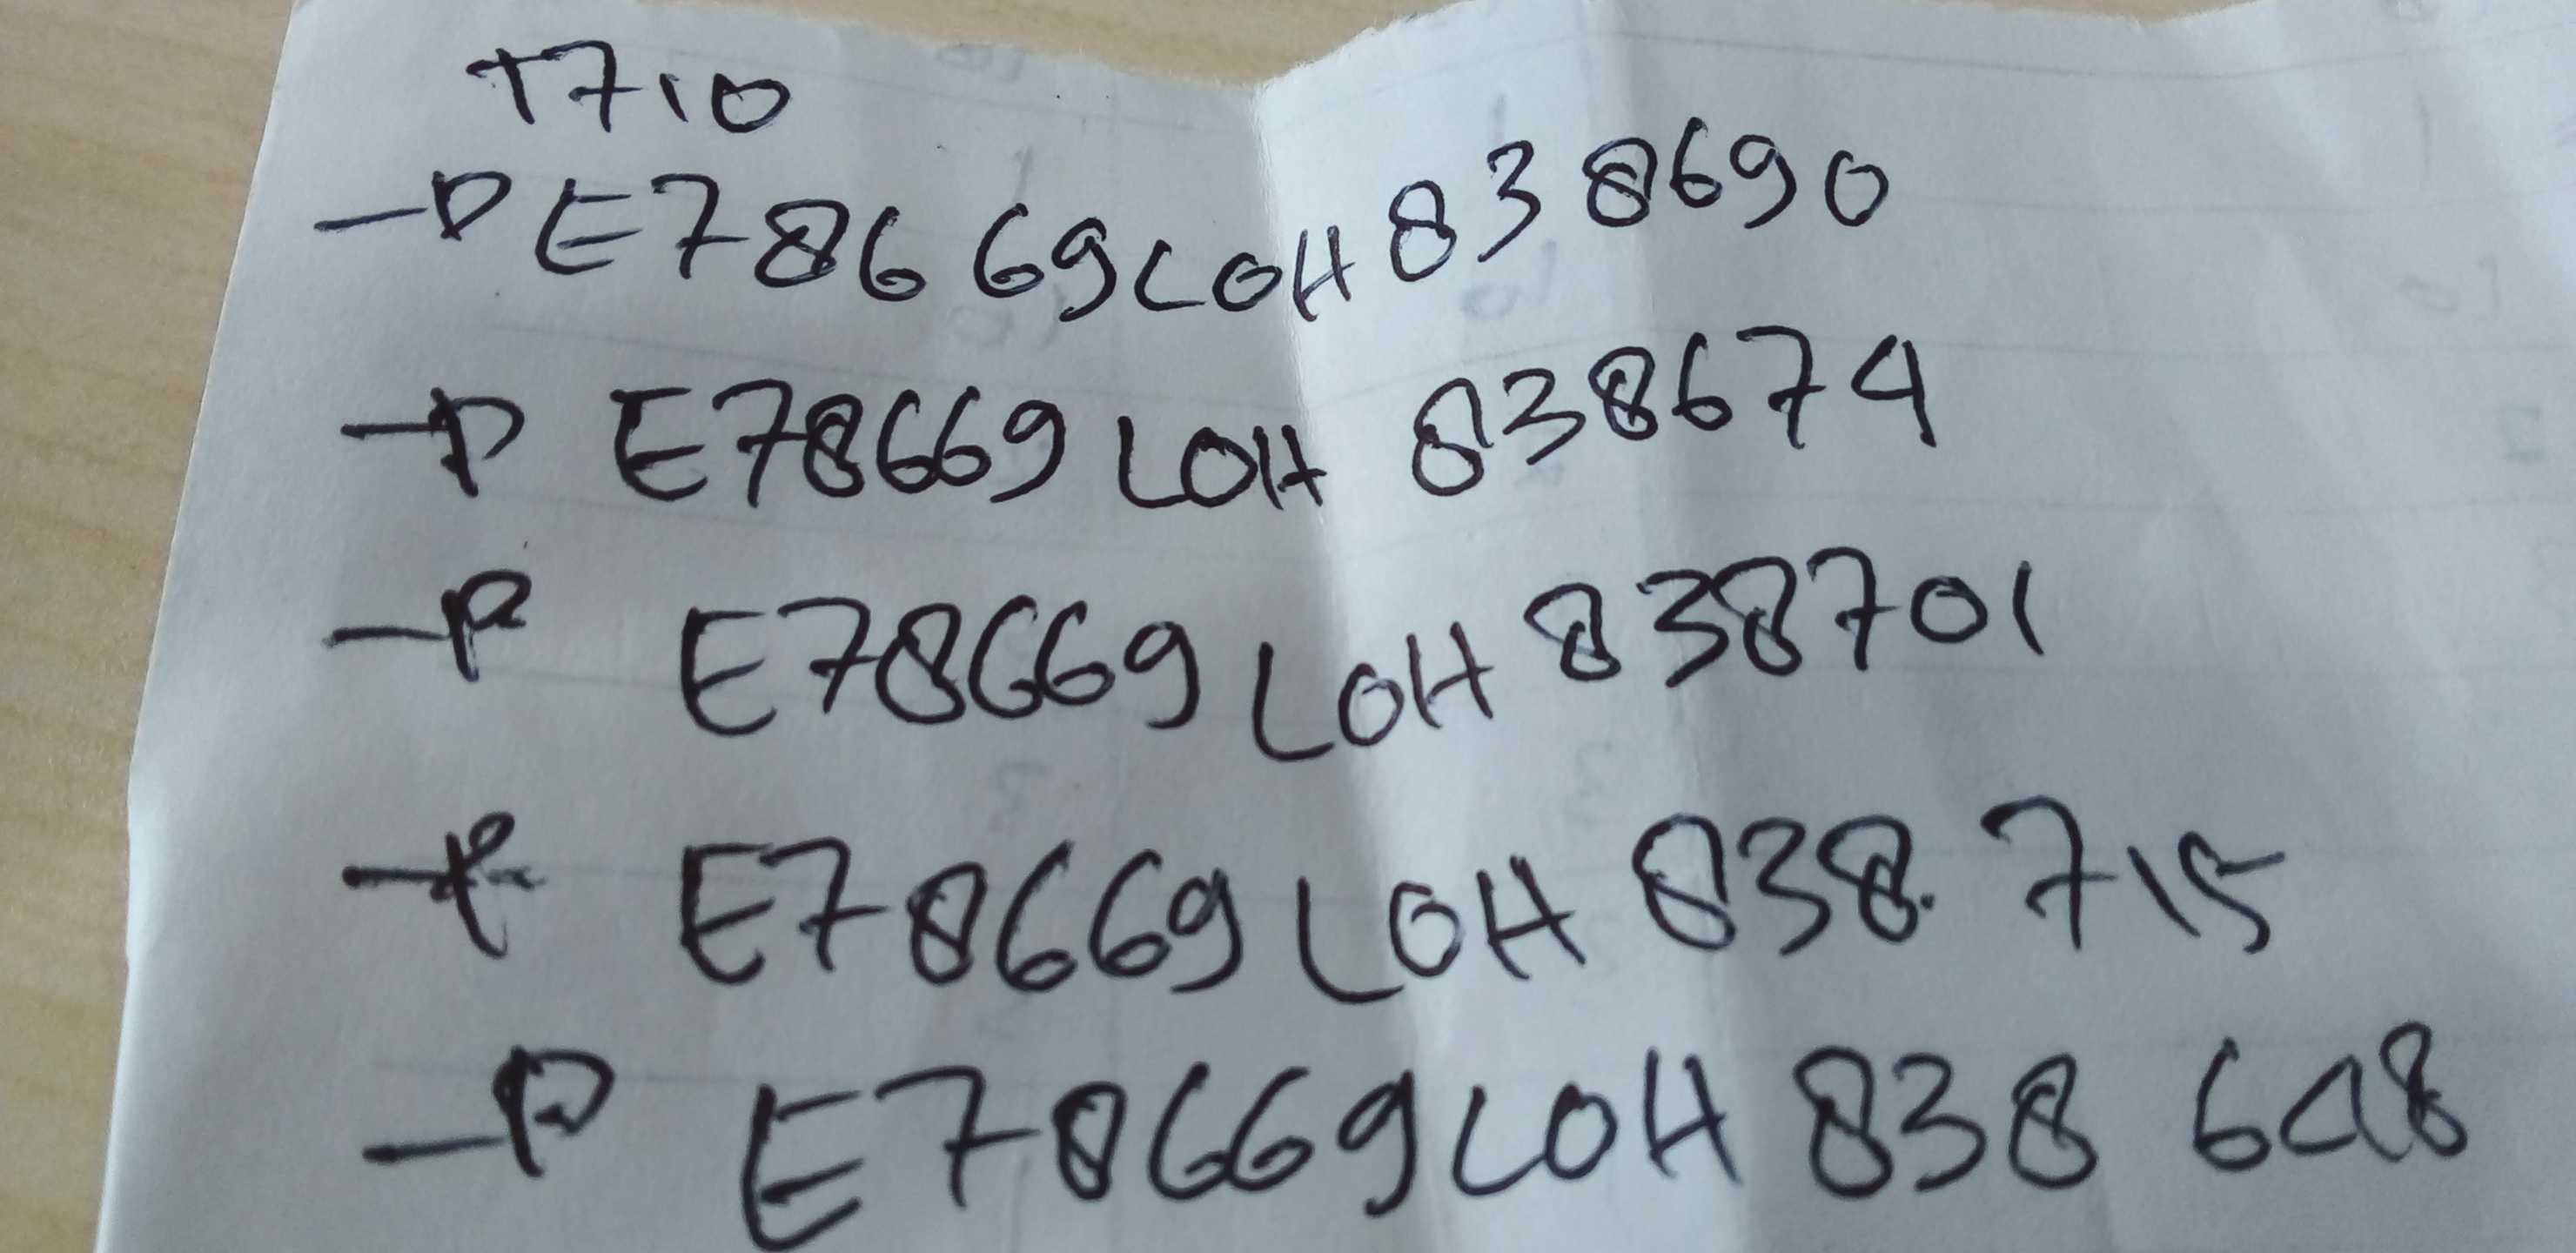 T710
→ E78669LOH838690
→ E78669 LOH 838674
→ E78669 LOH 838701
→ E78669 LOH 838.715
→ E78669LOH 838 648